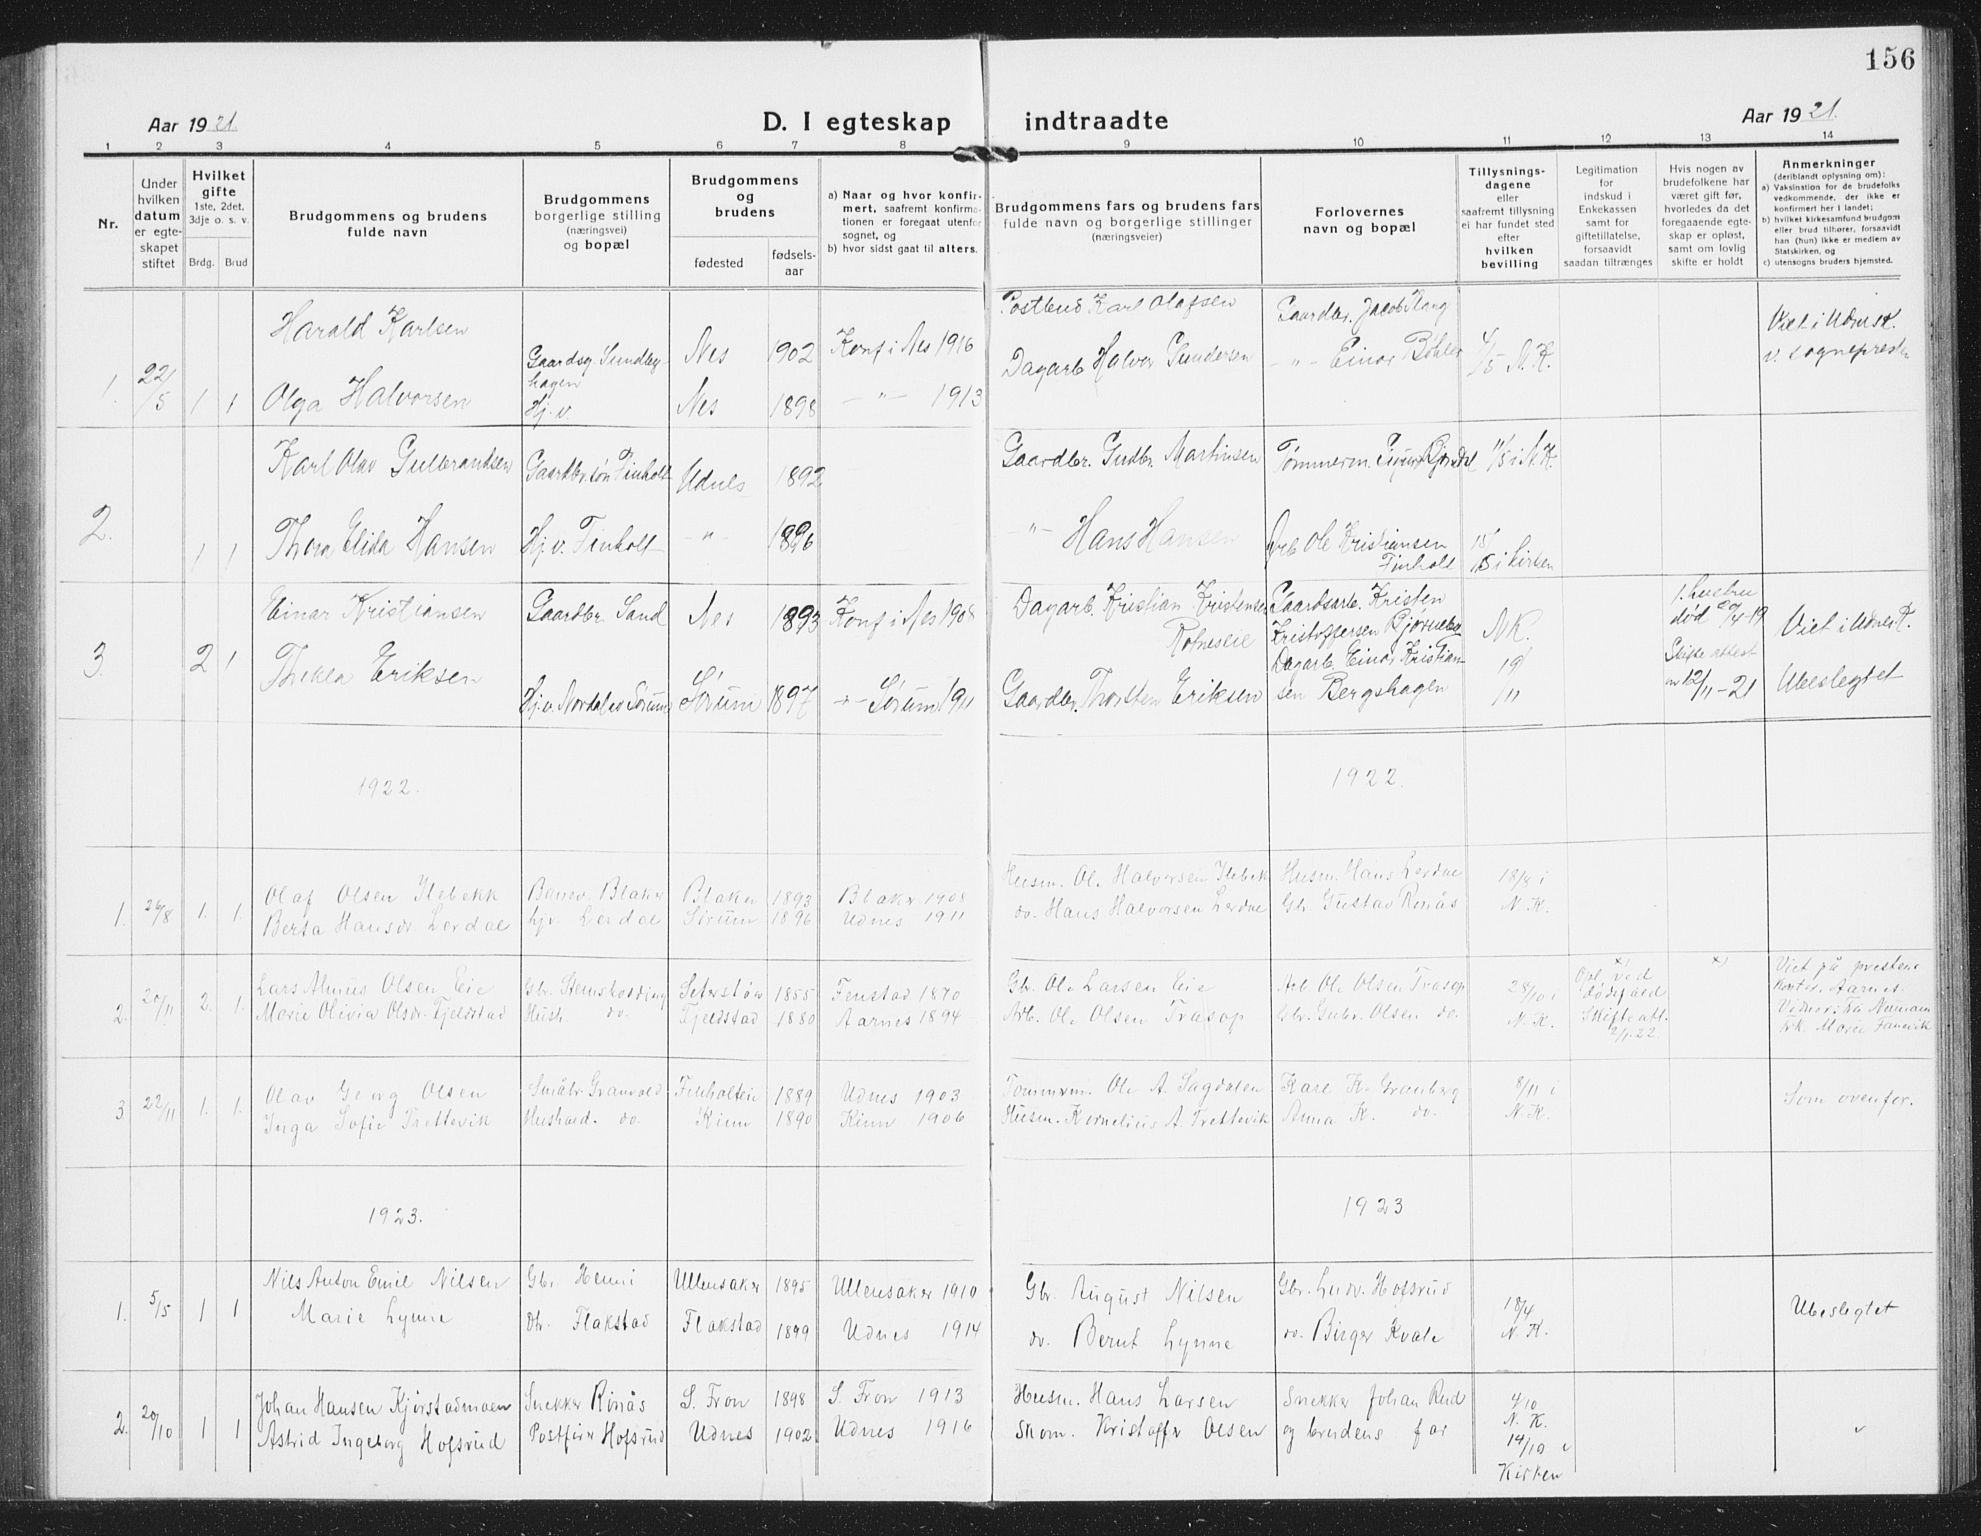 156
Aar 1921.
D. I egteskap indtraadte
Aar 1921.
1 2 3 4 5 6 7 8 9 10 11 12 13 14
Nr.
Under hvilken datum er egteskapet stiftet
Hvilket gifte 1ste, 2det, 3dje o. s. v.
Brdg. Brud
Brudgommens og brudens fulde navn
Brudgommens borgerlige stilling (næringsvei) og bopæl
Brudgommens og brudens
fødested
fødsels-aar
a) Naar og hvor konfirmert, saafremt konfirmationen er foregaat utenfor sognet, og
b) hvor sidst gaat til alters.
Brudgommens fars og brudens fars fulde navn og borgerlige stillinger (næringsveier)
Forlovernes navn og bopæl
Tillysningsdagene eller saafremt tillysning ei har fundet sted efter hvilken bevilling
Legitimation for indskud i Enkekassen samt for giftetillatelse, forsaavidt saadan tiltrænges
Hvis nogen av brudefolkene har været gift før, hvorledes da det foregaaende egteskap er opløst, samt om lovlig skifte er holdt
Anmerkninger (deriblandt oplysning om):
a) Vaksination for de brudefolks vedkommende, der ikke er konfirmert her i landet;
b) hvilket kirkesamfund brudgom eller brud tilhører, forsaavidt han (hun) ikke er medlem av Statskirken, og
c) utensogns bruders hjemsted.
1. 22/5 1 1
Harald Karlsen
Gaardsg. Sundbyhagen
Nes 1902 Konf i Nes 1916
Postbud Karl Olafsen
Gaardbr. Jacob Haug
4/5 N.K.
Viet i Udnes K. v. sognepresten
Olga Halvorsen
Hj. v.
Nes 1898 — " — 1913
Dagarb. Halvor Gundersen
— " — Einar Bøhler
2. 1 1
Karl Olav Gulbrandsen
Gaardbr. søn Finholt
Udnes 1892
Gaardbr. Gudbr. Martinsen
Tømmerm.
11/5 i N.K.
Thora Elida Hansen
Hj. v. Finholt
— " — 1896
— " — Hans Hansen
Arb. Ole Kristiansen Finholt
15/5 i kirken
3. 2 1
Einar Kristiansen
Gaardbr. Sand
Nes 1893 Konf i Nes 1908
Dagarb. Kristian Kristensen
Gaardsarb. Kristen Kristoffersen
N.K.
1. hustru død 20/4-19
Viet i Udnes K.
Thekla Eriksen
Hj. v. Nordal av Sørum
Sørum 1897 — " — Sørum 1911
Gaardbr. Thorsten Eriksen
Dagarb. Einar Kristiansen Bergshagen
19/11
Skifte attest av 12/11-21
Ubeslegtet
1922. 1922.
1. 26/8 1. 1.
Olaf Olsen Ilebekk
Banev. Blaker
Blaker 1893 Blaker 1908
Husm. Ole Halvorsen Ilebek
Husm. Hans Lerdae
18/8 i N.K.
Berta Hansdr. Lerdae
Hjv. Lerdae
Sørum 1896 Udnes 1911
do. Hans Halvorsen Lerdae
Gbr. Gustav Rønås
2. 20/11 2. 1.
Lars Olsen Eie
Seterstøa 1855 Fenstad 1870
Gbr. Ole Larsen Eie
Arb. Ole Olsen Trasop
28/10 i N.K.
Opl. ved dødsfald
Skifte att. 2/11-22
x)
Viet på prestens kontor, Aarnes.
Marie Olivia Olsdr. Fjeldstad
Hush. do.
Fjeldstad 1880 Aarnes 1894
Arb. Ole Olsen Trasop
Gbr. Gubr. Olsen do.
3. 22/11 1. 1.
Olav Georg Olsen
Småbr. Granvold
Finholteie 1889 Udnes 1903
Tømmerm. Ole A. Sagdalen
Kare K. Grønberg
8/11 i N.K.
Som ovenfor.
Inga Sofie Trettevik
Hushold. do.
Kinn 1890 Kinn 1906
Husm. Kornelius A. Trettevik
Anna K. do.
1923. 1923
1. 5/5 1 1
Nils Anton Emil Nilsen
Gbr. Henni
Ullensaker 1895 Ullensaker 1910
Gbr. August Nilsen
Gbr. Ludv. Hofsrud
18/4 N.K.
Ubeslegtet
Marie Lynne
Dtr. Flakstad
Flakstad 1899 Udnes 1914
do. Bernt Lynne
do. Birger Kvale
2. 20/10 1 1
Johan Hansen Kjørstadmoen
Snekker Rønås
S. Fron 1898 S. Fron 1913
Husm. Hans Larsen
Snekker Johan Rud
4/10 N.K.
Astrid Ingeborg Hofsrud
Postfører Hofsrud
Udnes 1902 Udnes 1916
Skom. Kristoffer Olsen
og brudens far
14/10 i Kirken